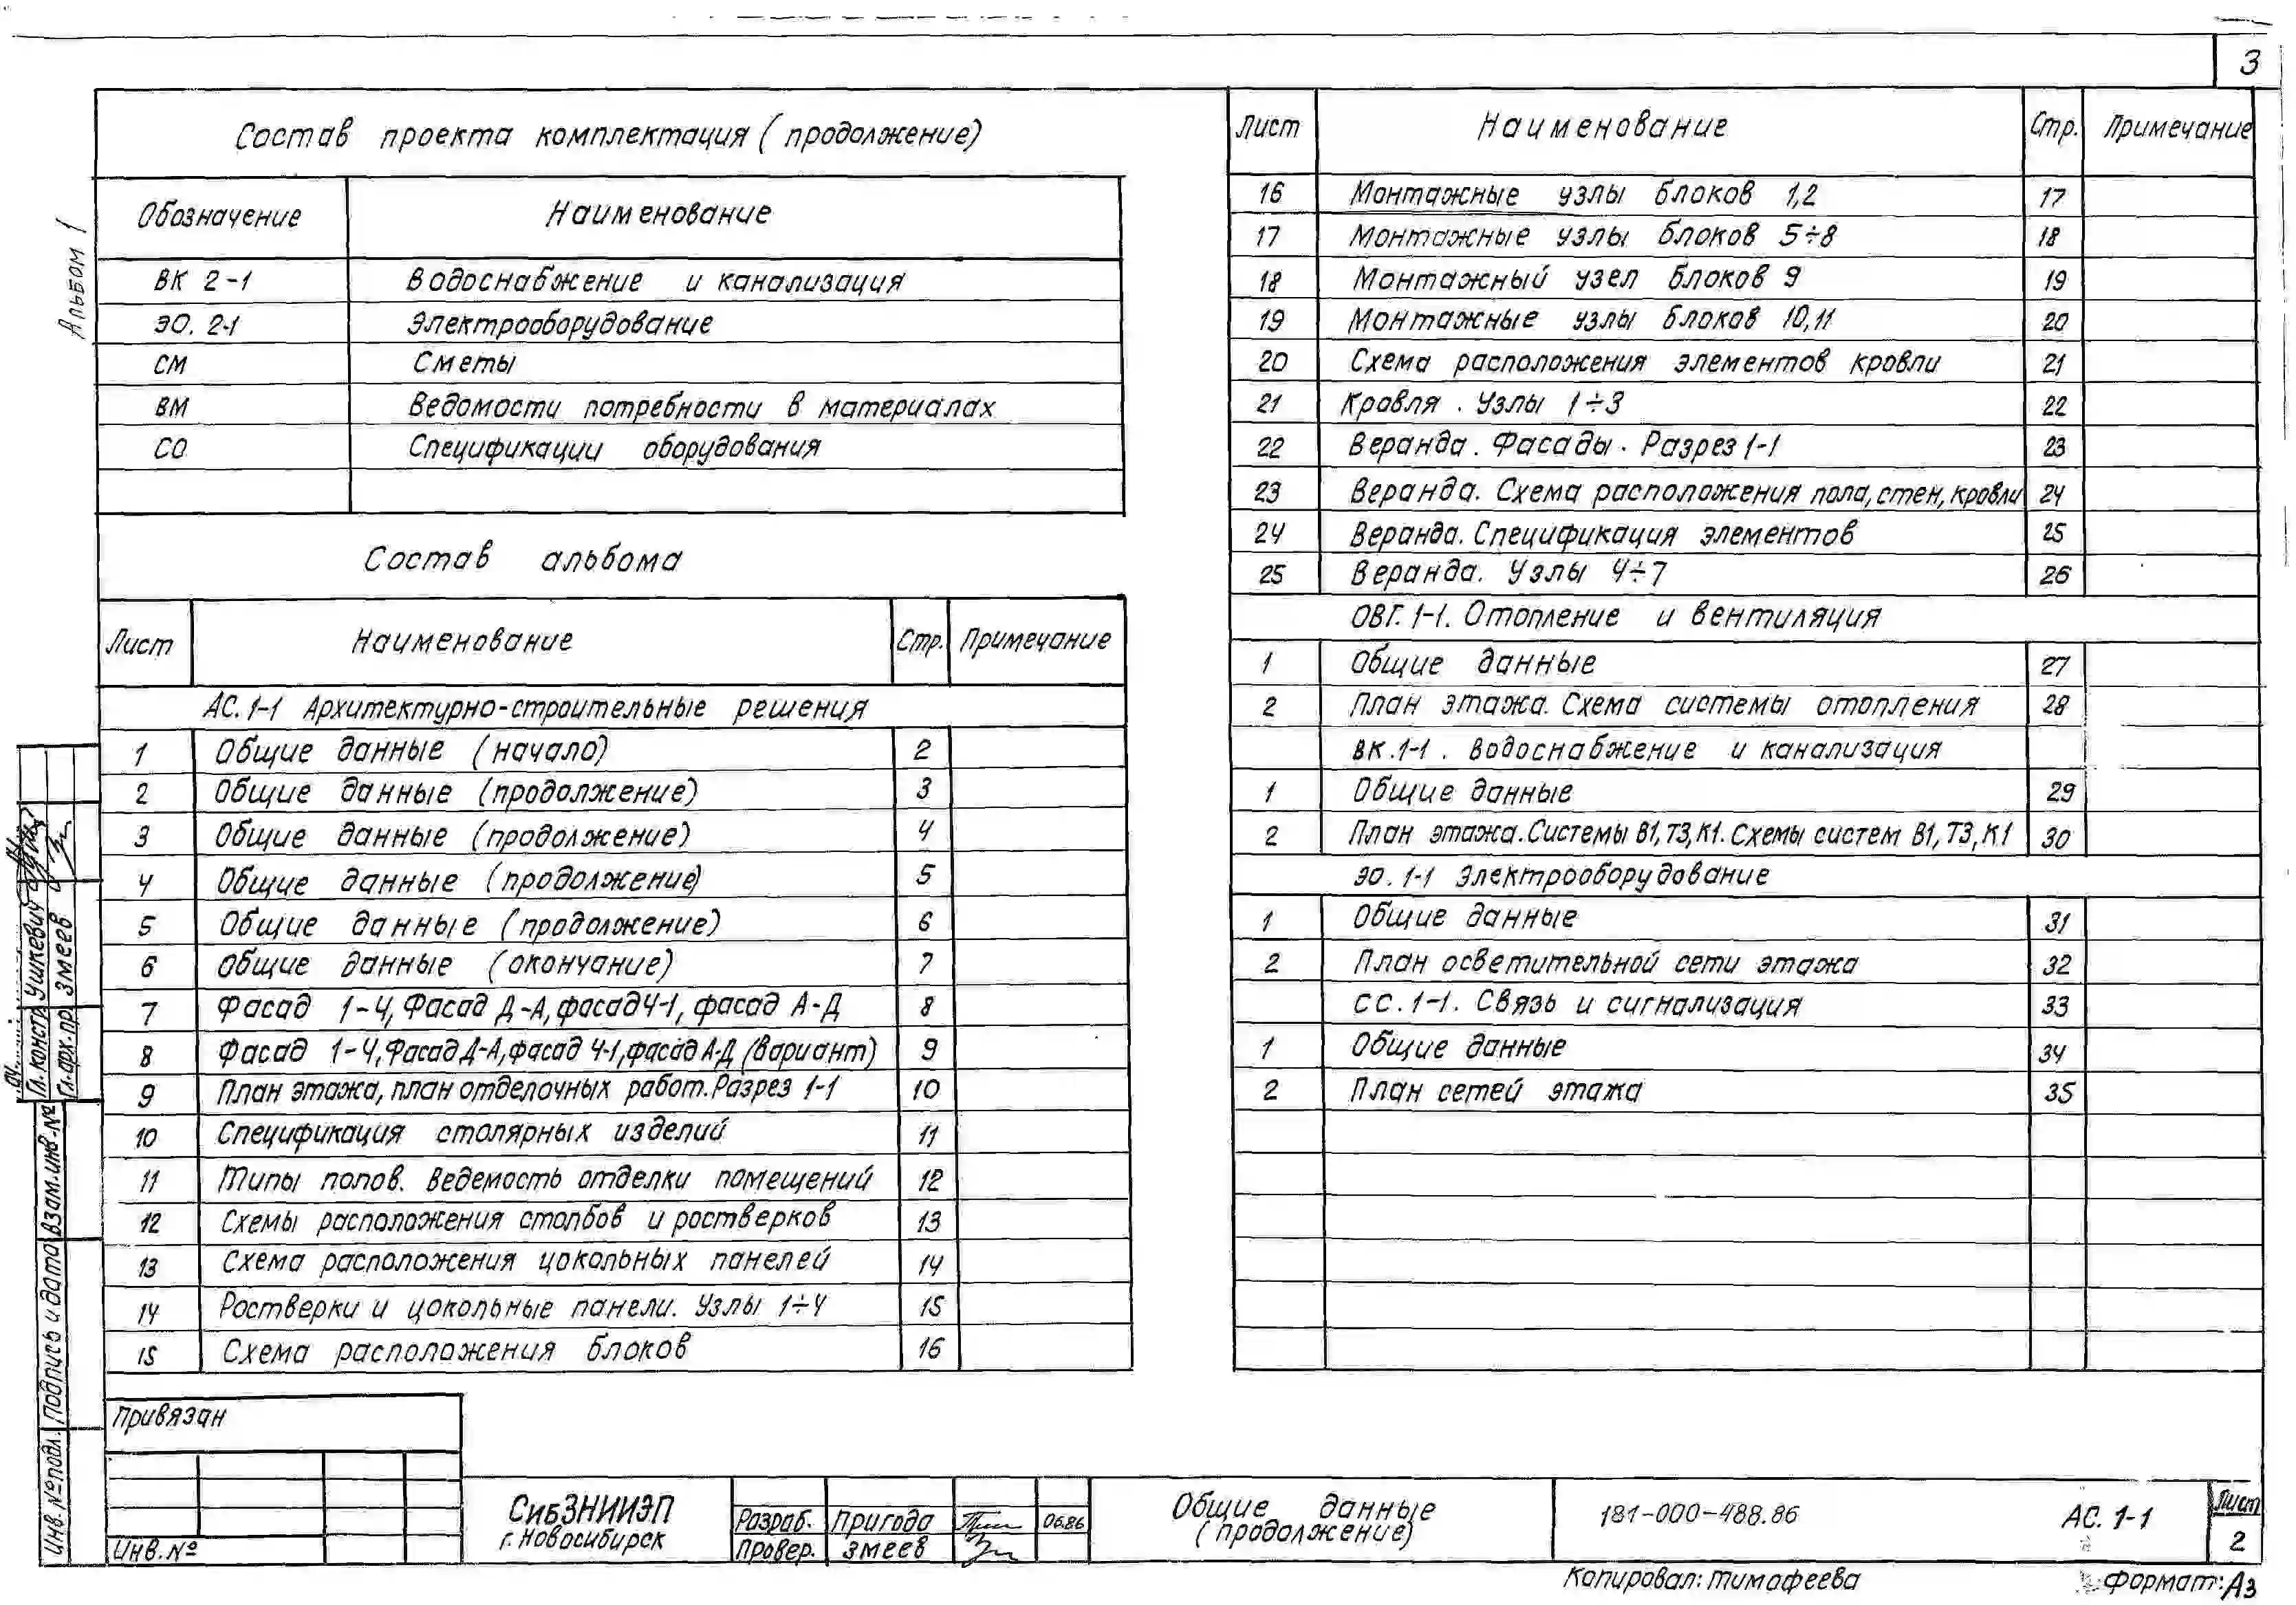 3
Альбом 1
Состав проекта комплектация (продолжение)
Обозначение Наименование
ВК 2-1 Водоснабжение и канализация
ЭО. 2-1 Электрооборудование
СМ Сметы
ВМ Ведомости потребности в материалах
СО Спецификации оборудования
Состав альбома
Лист Наименование Стр. Примечание
АС. 1-1 Архитектурно-строительные решения
1 Общие данные (начало) 2
2 Общие данные (продолжение) 3
3 Общие данные (продолжение) 4
4 Общие данные (продолжение) 5
5 Общие данные (продолжение) 6
6 Общие данные (окончание) 7
7 Фасад 1-4, Фасад Д-А, фасад 4-1, фасад А-Д 8
8 Фасад 1-4, Фасад Д-А, фасад 4-1, фасад А-Д (вариант) 9
9 План этажа, план отделочных работ. Разрез 1-1 10
10 Спецификация столярных изделий 11
11 Типы полов. Ведемость отделки помещений 12
12 Схемы расположения столбов и ростверков 13
13 Схема расположения цокольных панелей 14
14 Ростверки и цокольные панели. Узлы 1÷4 15
15 Схема расположения блоков 16
Лист Наименование Стр. Примечание
16 Монтажные узлы блоков 1,2 17
17 Монтажные узлы блоков 5÷8 18
18 Монтажный узел блоков 9 19
19 Монтажные узлы блоков 10,11 20
20 Схема расположения элементов кровли 21
21 Кровля. Узлы 1÷3 22
22 Веранда. Фасады. Разрез 1-1 23
23 Веранда. Схема расположения пола, стен, кровли 24
24 Веранда. Спецификация элементов 25
25 Веранда. Узлы 4÷7 26
ОВГ. 1-1. Отопление и вентиляция
1 Общие данные 27
2 План этажа. Схема системы отопления 28
ВК. 1-1. Водоснабжение и канализация
1 Общие данные 29
2 План этажа. Системы В1, Т3, К1. Схемы систем В1, Т3, К1 30
ЭО. 1-1 Электрооборудование
1 Общие данные 31
2 План осветительной сети этажа 32
СС. 1-1. Связь и сигнализация 33
1 Общие данные 34
2 План сетей этажа 35
Гл. констр. Ушкевич
Гл. арх. пр. Змеев
Взам. инв. №
Подпись и дата
Инв. № подл.
Привязан
Инв. №
СибЗНИИЭП
г. Новосибирск
Разраб. Пригода 06.86
Провер. Змеев
Общие данные
(продолжение)
181-000-488.86 АС. 1-1
Лист
2
Копировал: Тимофеева Формат: А3